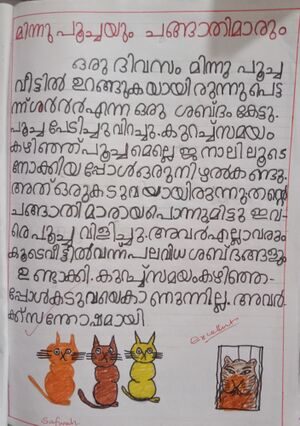 മിന്നു പൂച്ചയും ചങ്ങാതിമാരും
ഒരു ദിവസം മിന്നു പൂച്ച
വീട്ടിൽ ഉറങ്ങുകയായിരുന്നു പെട്ട
ന്ന് ഗർർർ എന്ന ഒരു ശബ്ദം കേട്ടു.
പൂച്ച പേടിച്ചു വിറച്ചു. കുറച്ച് സമയം
കഴിഞ്ഞ് പൂച്ച മെല്ലെ ജനാലിലൂടെ
നോക്കിയപ്പോൾ ഒരു നിഴൽ കണ്ടു.
അത് ഒരു കടുവയായിരുന്നു. തന്റെ
ചങ്ങാതിമാരായ പൊന്നു മിട്ടു ഇവ-
രെ പൂച്ച വിളിച്ചു. അവർ എല്ലാവരും
കൂടെ വീട്ടിൽ വന്ന് പലവിധ ശബ്ദങ്ങളും
ഉണ്ടാക്കി. കുറച്ച് സമയം കഴിഞ്ഞ-
പ്പോൾ കടുവയെ കാണുന്നില്ല. അവർ
ക്ക് സന്തോഷമായി
Excellent
Safwah